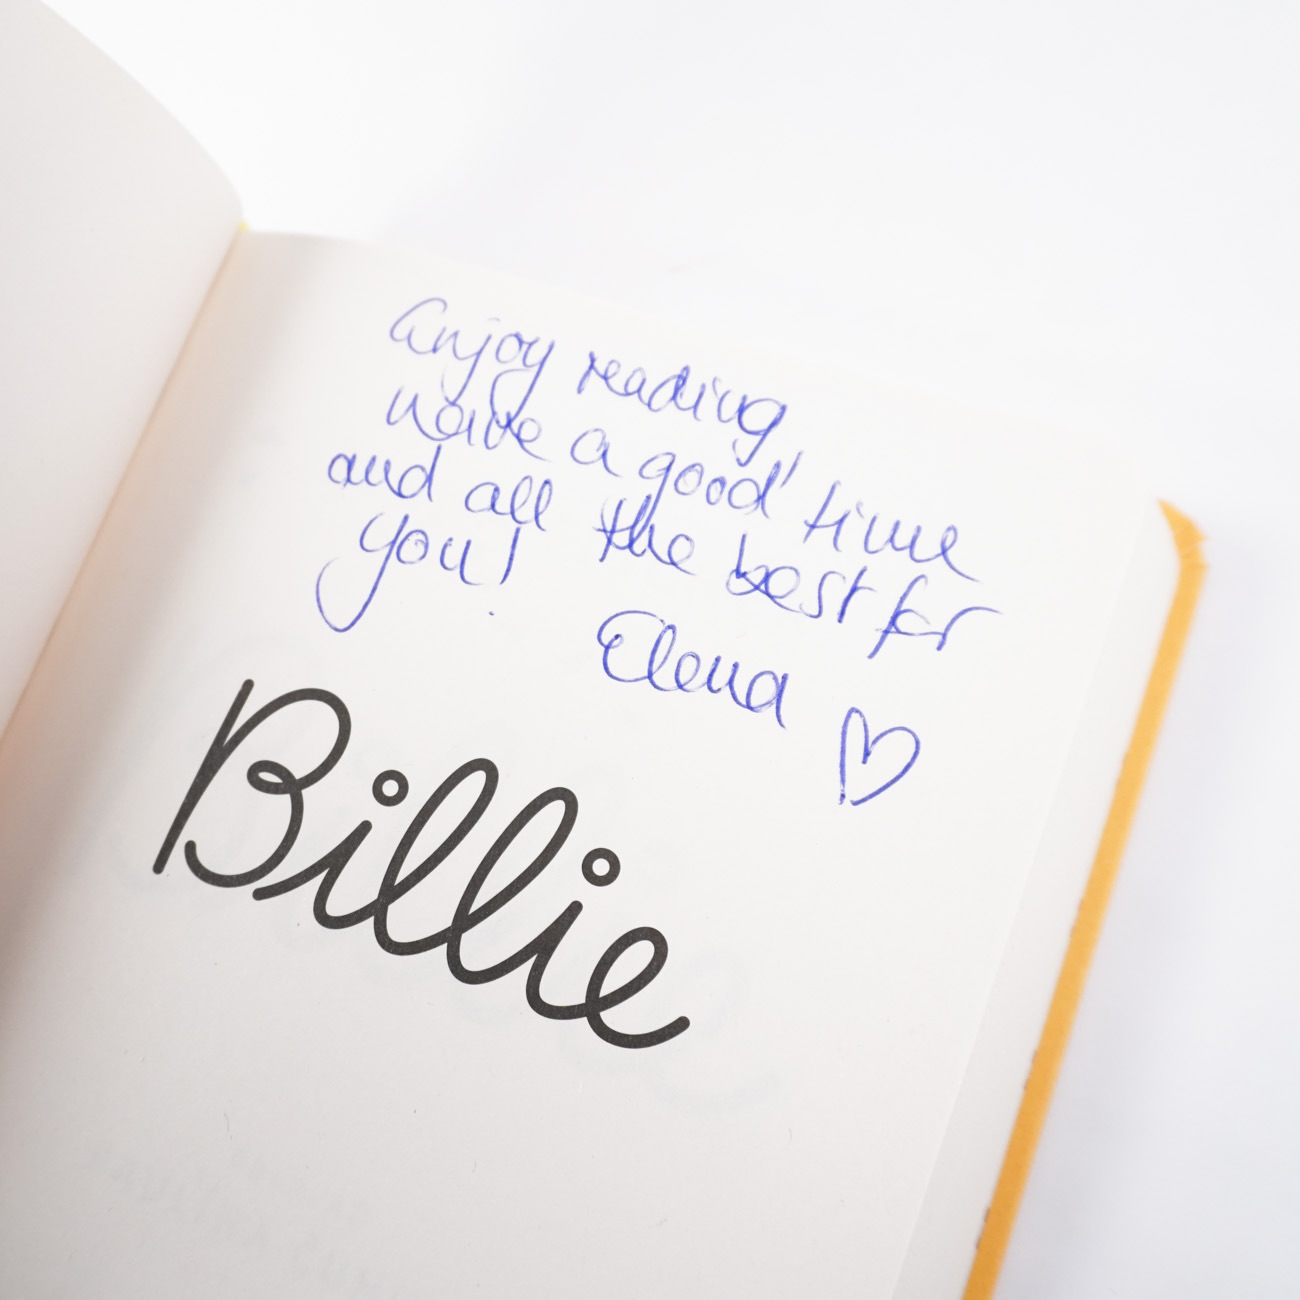 Enjoy reading,
have a good time
and all the best for
you!
Elena ♡
Billie